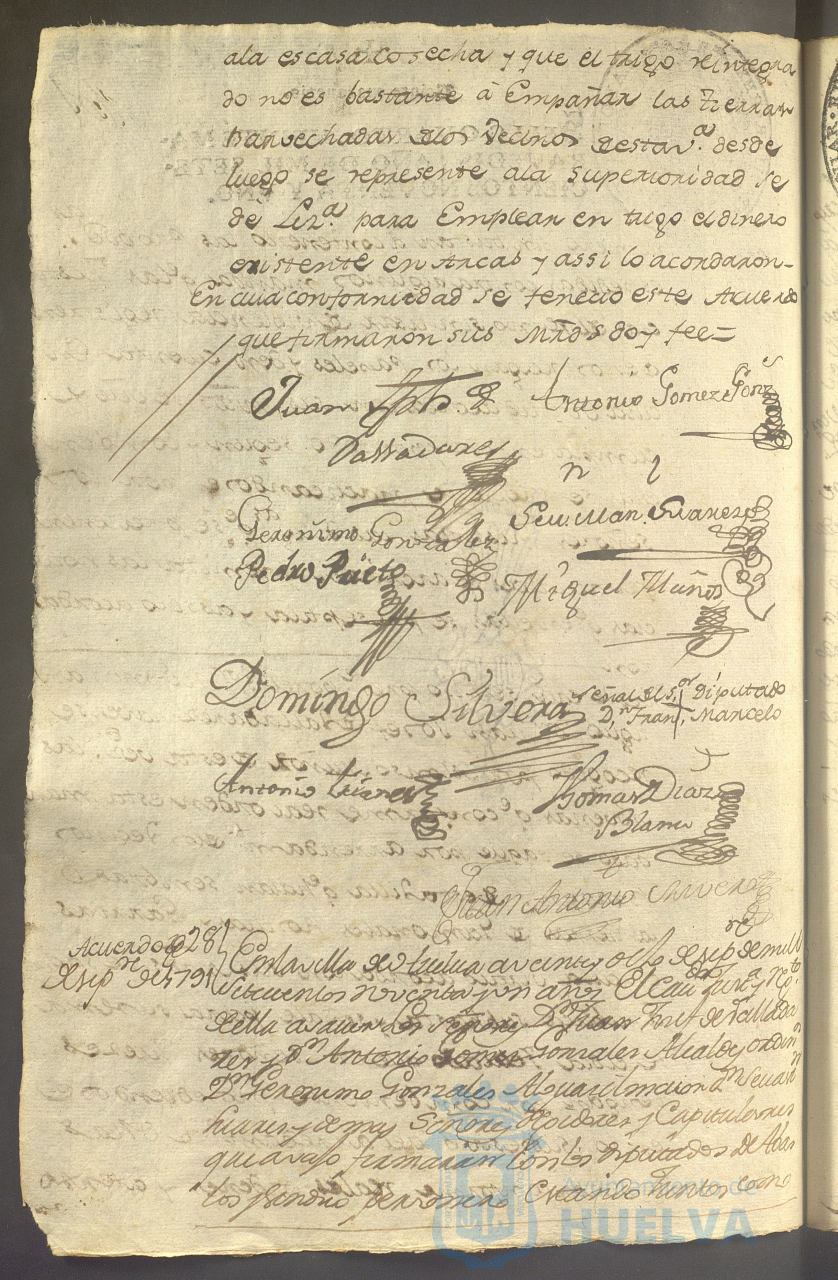 ala escasa cosecha y que el trigo reintegra
do no es bastante â Empañar las tierras
barvechadas de los Vecinos de esta v.ª desde
luego se represente ala superioridad se
dé Liz.ª para Emplear en trigo el dinero
existente en Arcas y assi lo acordaron-
En cuia conformidad se fenecio este Acuerdo
que firmaron sus Mrds doy fee=
Juan Jph de
Antonio Gomez Gonz
Valladares
Geronimo Gonzalez
Sev. Man. Suarez
Pedro Prieto
Miguel Muños
Domingo Silvera
Señal del S.or Diputado
D.n Fran. Marcelo
Antonio Suarez
Thomas Diaz
Blanco
Juan Antonio
Acuerdo de 28
de sep.re de 1791
En la villa de Huelva a veinte y ocho de sep.re de mill
setecientos noventa y un años El Cav.do Just.ª y Reg.to
de ella a saver los Señores D.n Juan Jph de Vallada
res y D.n Antonio Gomez Gonzales Alcaldes ordin.s
D.n Geronimo Gonzales Alguacil maior D.n Sevast.n
Suares y demas Señores Rexidores y Capitulares
que avajo firmaran con los diputados de Abas
tos y Sindico personero Estando juntos como
Ayuntamiento de
HUELVA